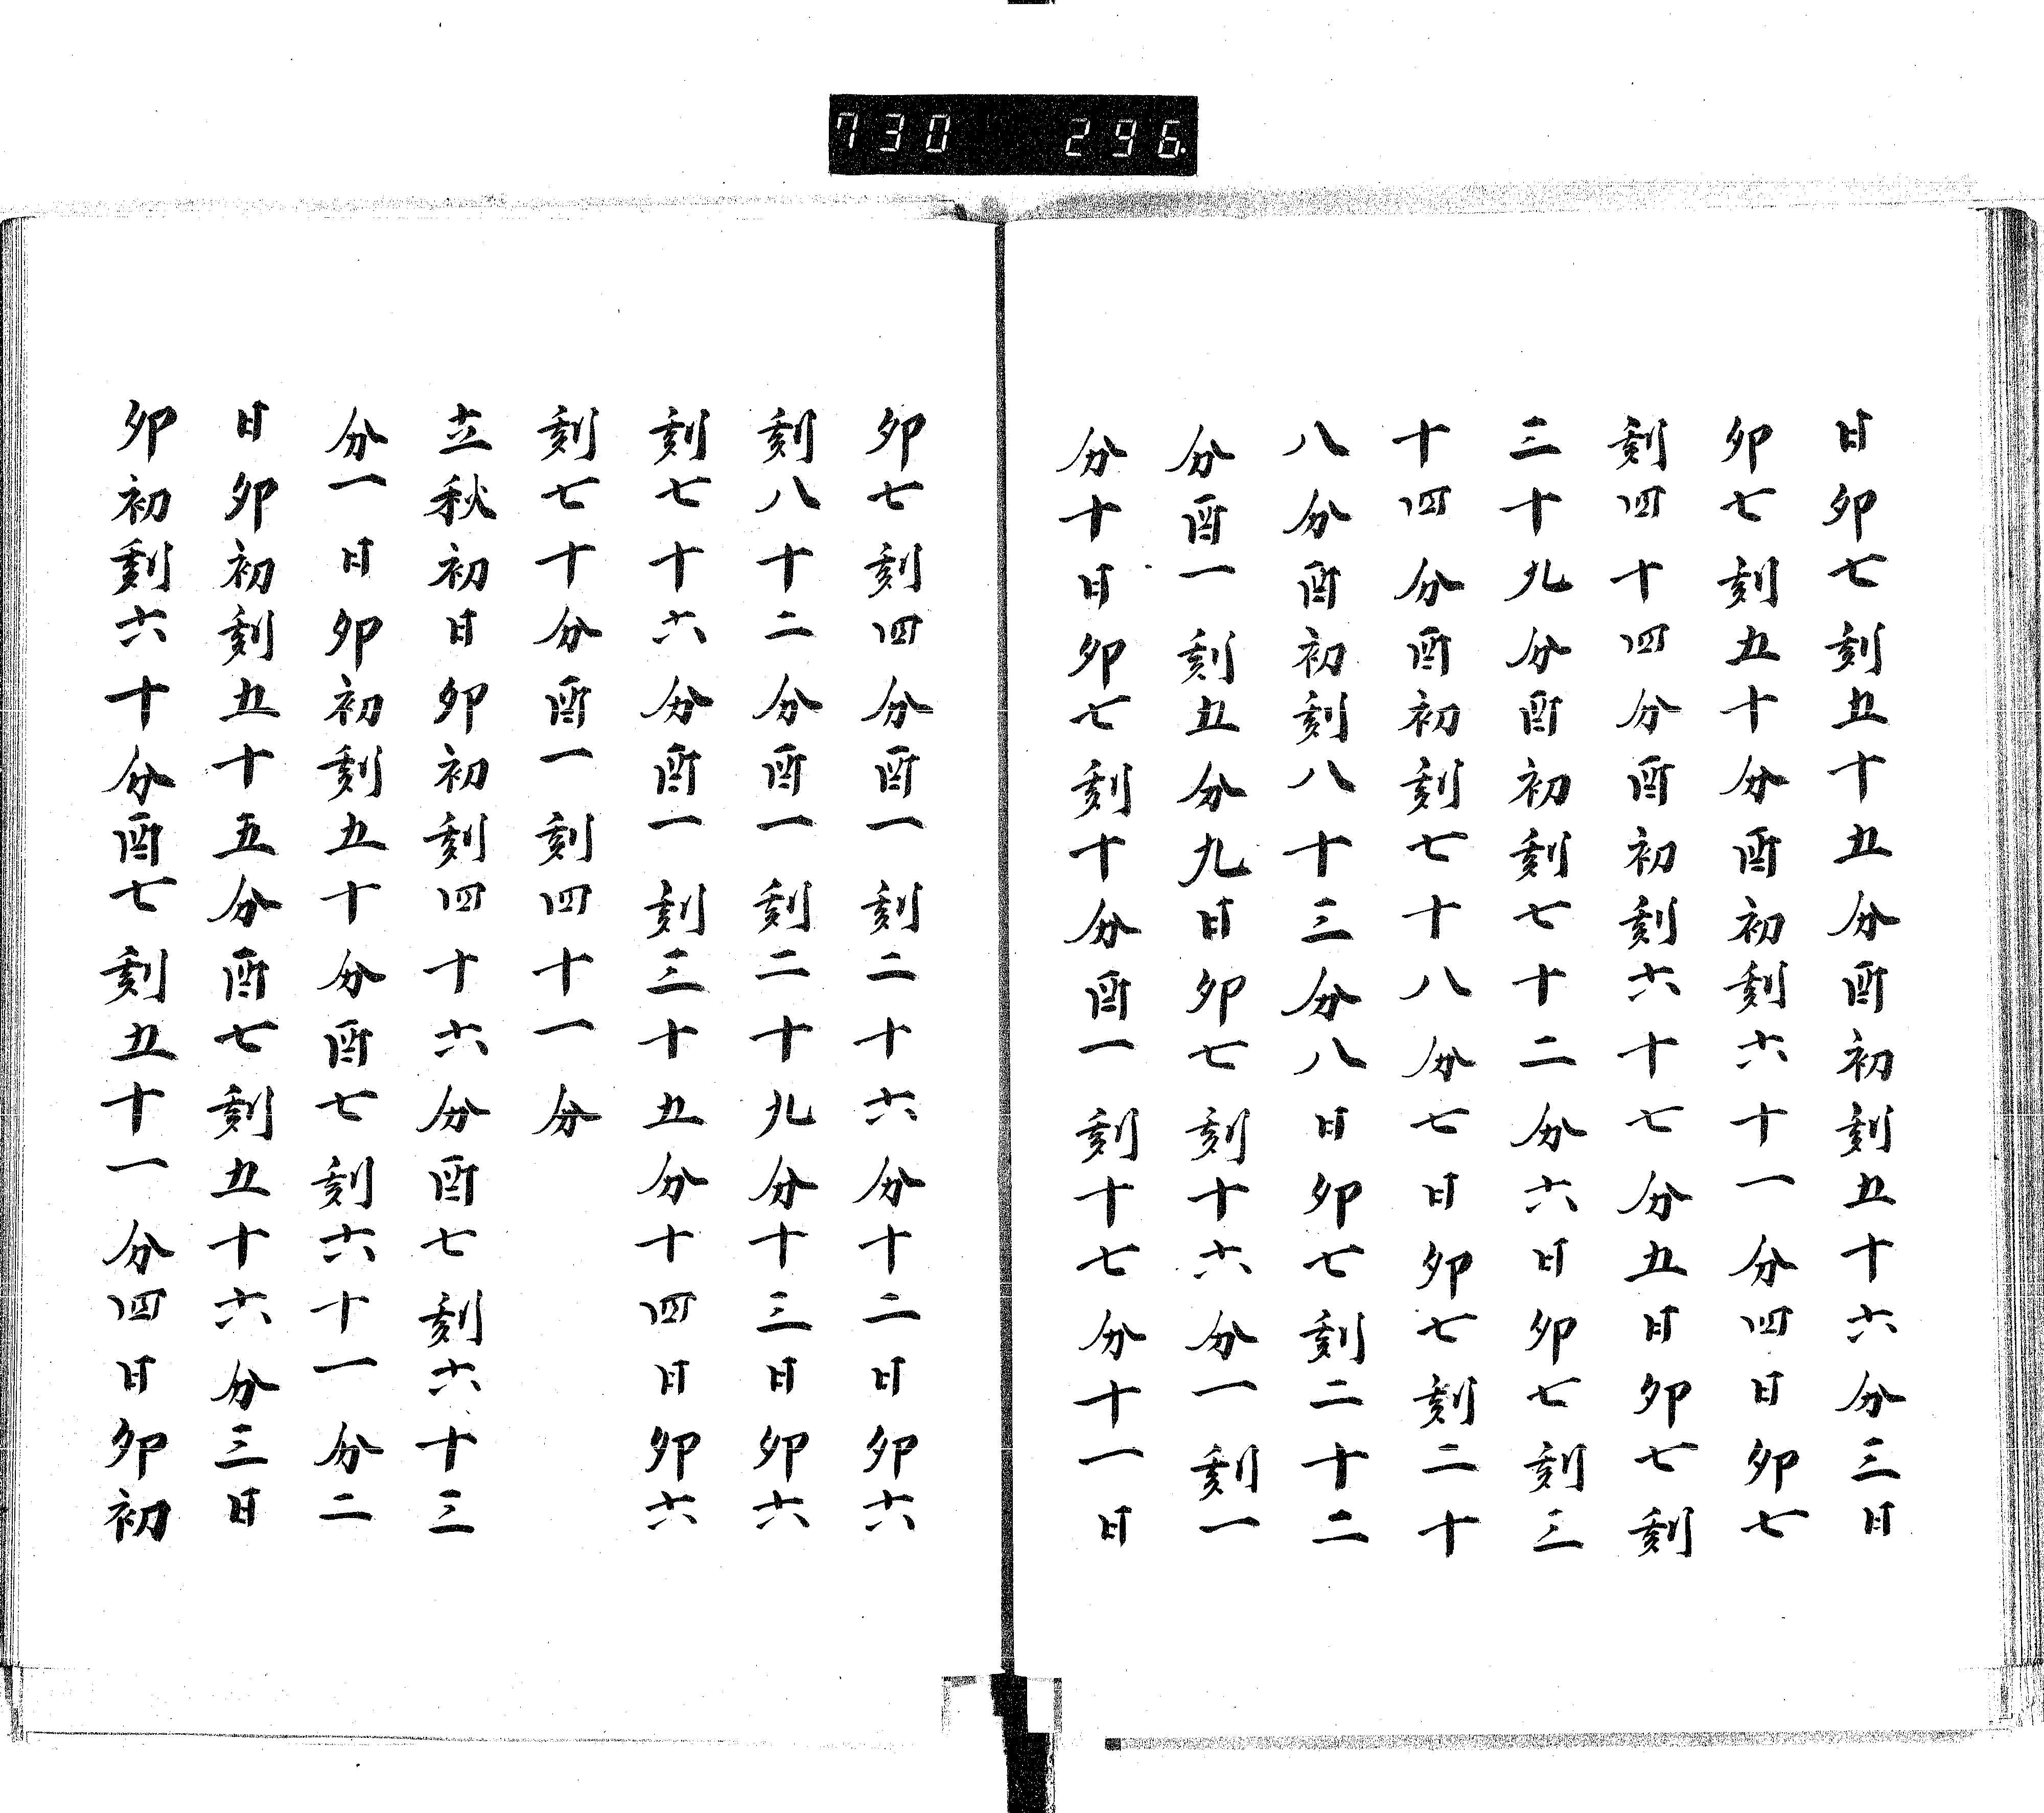 730 296
日卯七刻五十五分酉初刻五十六分三日
卯七刻五十分酉初刻六十一分四日卯七
刻四十四分酉初刻六十七分五日卯七刻
三十九分酉初刻七十二分六日卯七刻三
十四分酉初刻七十八分七日卯七刻二十
八分酉初刻八十三分八日卯七刻二十二
分酉一刻五分九日卯七刻十六分一刻一
分十日卯七刻十分酉一刻十七分十一日
卯七刻四分酉一刻二十六分十二日卯六
刻八十二分酉一刻二十九分十三日卯六
刻七十六分酉一刻三十五分十四日卯六
刻七十分酉一刻四十一分
立秋初日卯初刻四十六分酉七刻六十三
分一日卯初刻五十分酉七刻六十一分二
日卯初刻五十五分酉七刻五十六分三日
卯初刻六十分酉七刻五十一分四日卯初